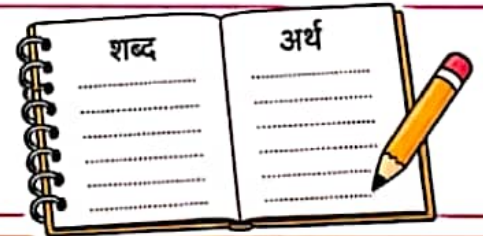 शब्द
अर्थ